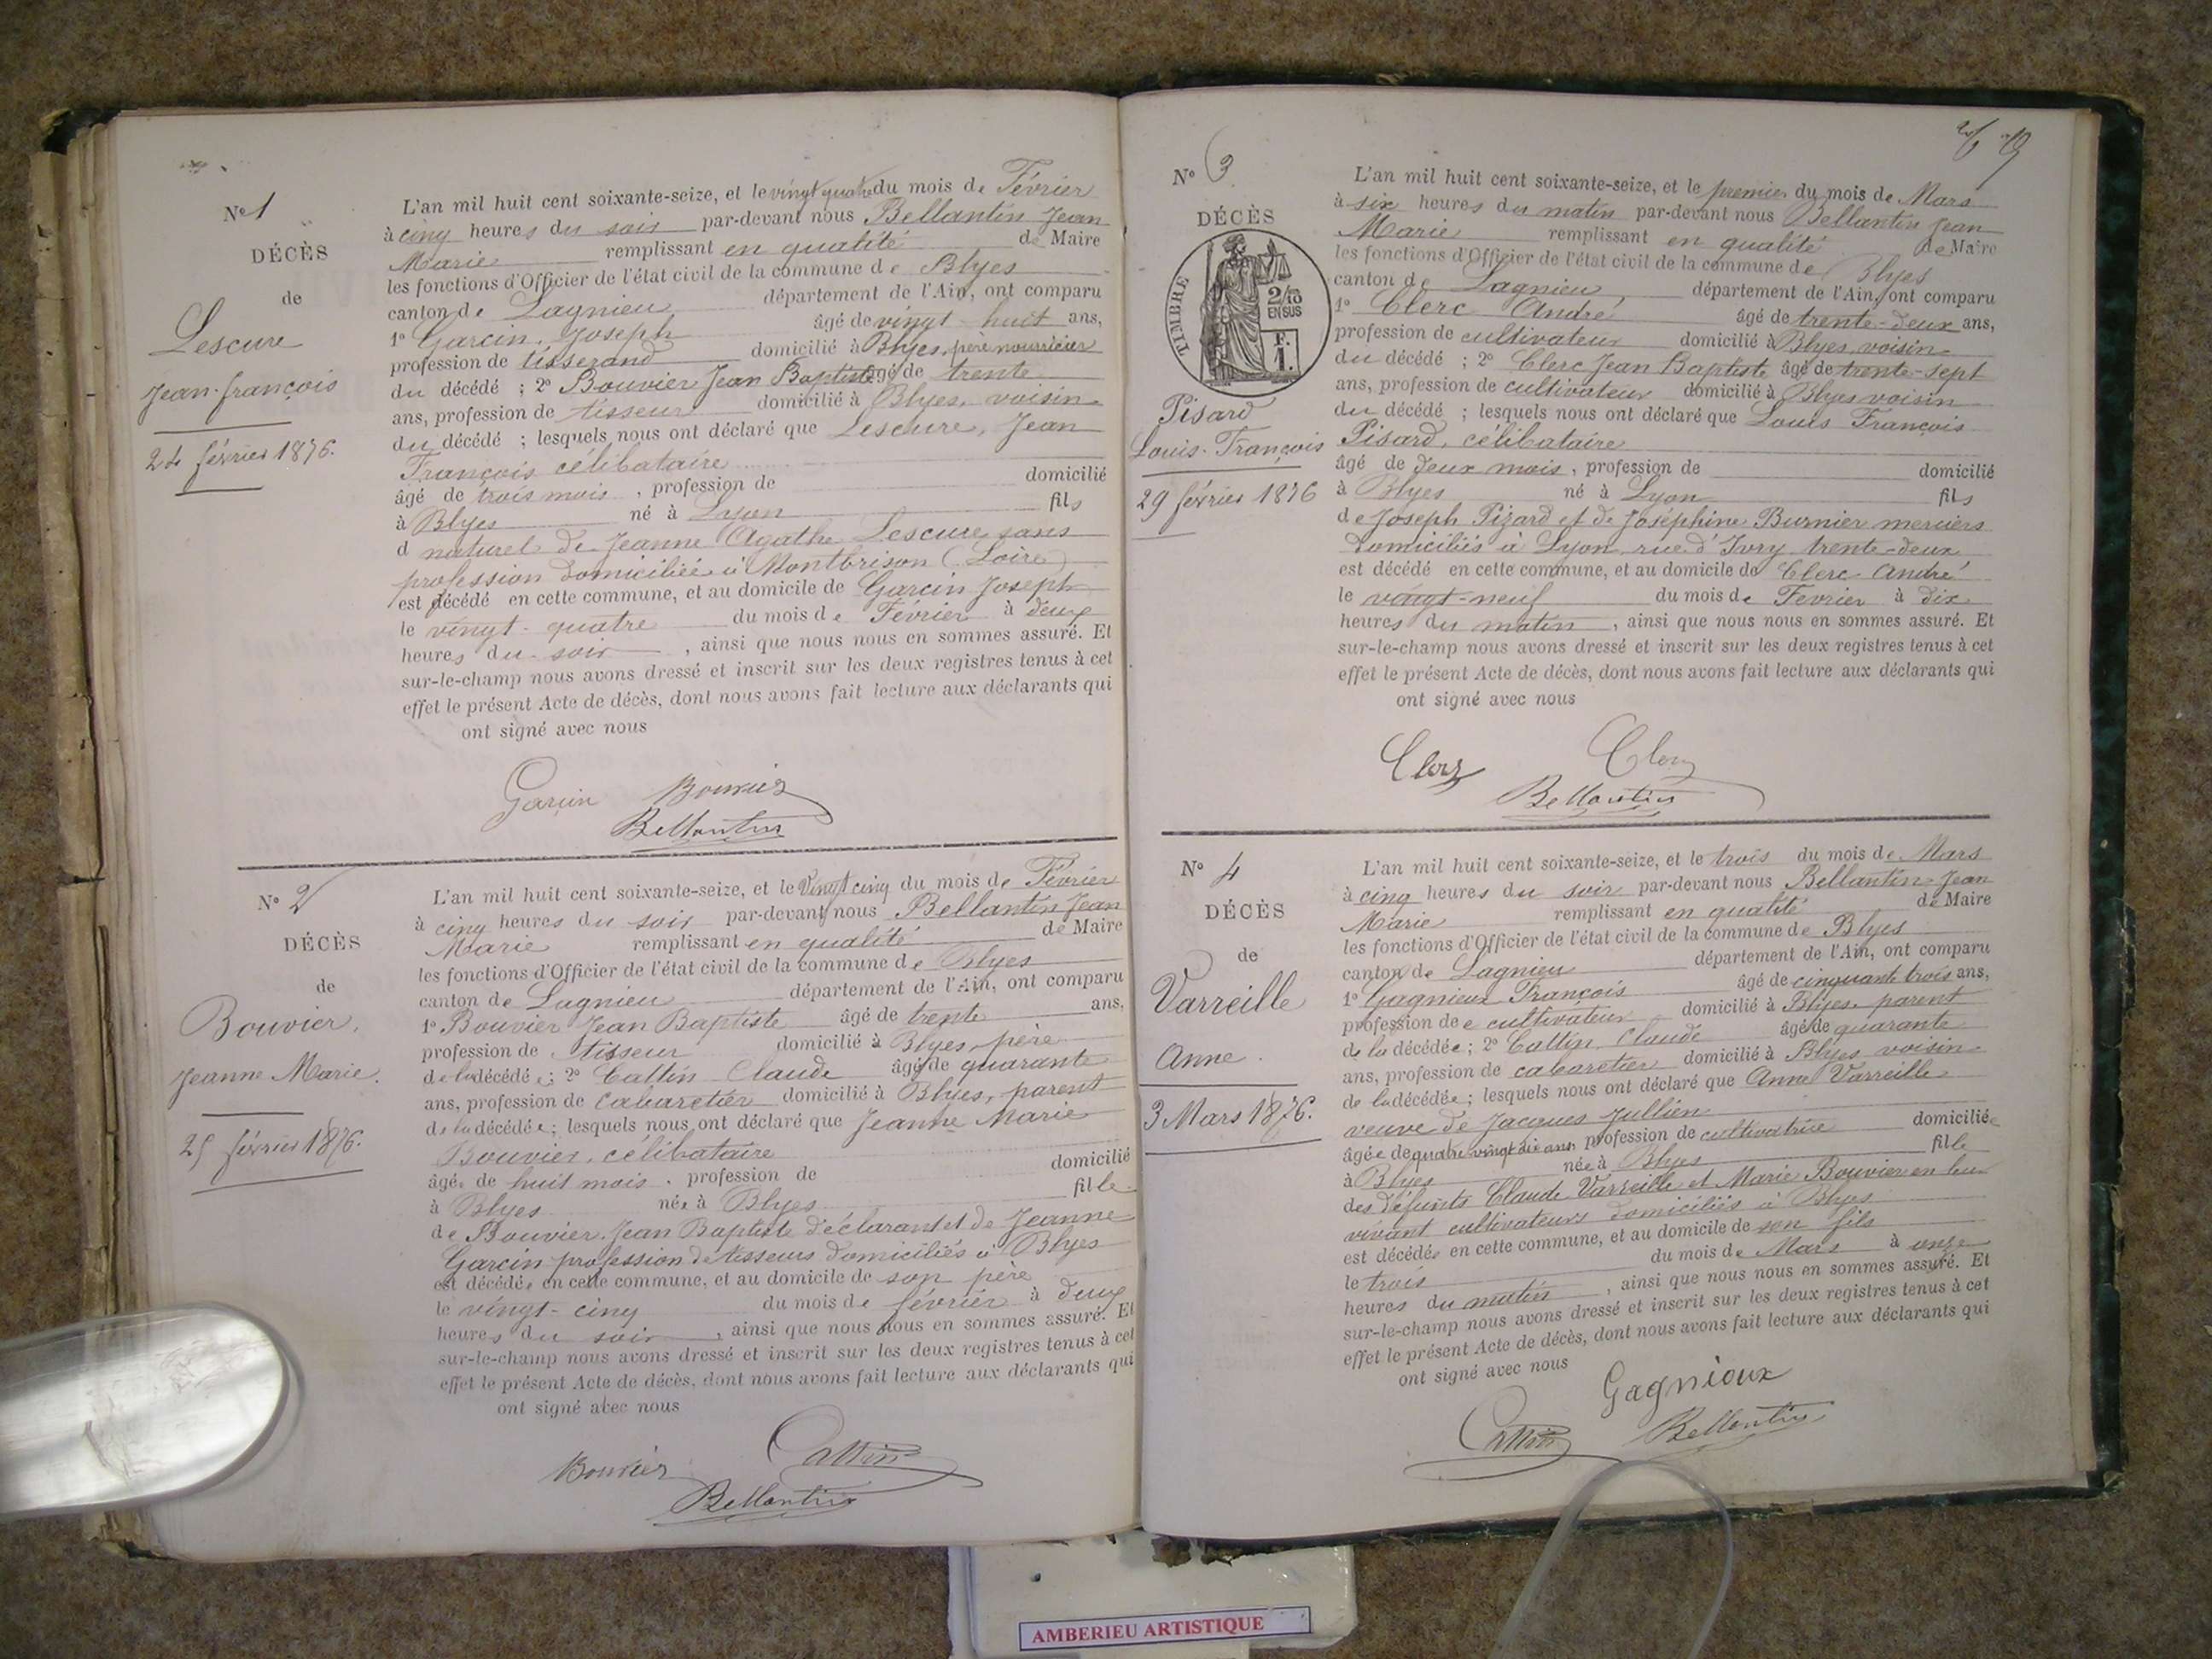 Nº 1
DÉCÈS
de
Lescure
Jean-françois
24 février 1876.
L'an mil huit cent soixante-seize, et le vingt quatre du mois de Février
à cinq heures du soir par-devant nous Bellantin Jean
Marie remplissant en qualité de Maire
les fonctions d'Officier de l'état civil de la commune de Blyes
canton de Lagnieu département de l'Ain, ont comparu
1º Garcin Joseph âgé de vingt-huit ans,
profession de tisserand domicilié à Blyes, père nourricier
du décédé ; 2º Bouvier Jean Baptiste âgé de trente
ans, profession de tisseur domicilié à Blyes, voisin
du décédé ; lesquels nous ont déclaré que Lescure, Jean
François célibataire
âgé de trois mois, profession de domicilié
à Blyes né à Lyon fils
d naturel de Jeanne Agathe Lescure sans
profession domiciliée à Montbrison (Loire)
est décédé en cette commune, et au domicile de Garcin Joseph
le vingt-quatre du mois de Février à deux
heures du soir, ainsi que nous nous en sommes assuré. Et
sur-le-champ nous avons dressé et inscrit sur les deux registres tenus à cet
effet le présent Acte de décès, dont nous avons fait lecture aux déclarants qui
ont signé avec nous
Garcin Bouvier
Bellantin
Nº 2
DÉCÈS
de
Bouvier,
Jeanne Marie.
25 février 1876.
L'an mil huit cent soixante-seize, et le Vingt cinq du mois de Février
à cinq heures du soir par-devant nous Bellantin Jean
Marie remplissant en qualité de Maire
les fonctions d'Officier de l'état civil de la commune de Blyes
canton de Lagnieu département de l'Ain, ont comparu
1º Bouvier Jean Baptiste âgé de trente ans,
profession de tisseur domicilié à Blyes, père
de la décédée ; 2º Cattin Claude âgé de quarante
ans, profession de cabaretier domicilié à Blyes, parent
de la décédée ; lesquels nous ont déclaré que Jeanne Marie
Bouvier, célibataire
âgée de huit mois, profession de domicilié
à Blyes née à Blyes fille
de Bouvier Jean Baptiste déclarant et de Jeanne
Garcin profession de tisseurs domiciliés à Blyes
est décédée en cette commune, et au domicile de son père
le vingt-cinq du mois de février à deux
heures du soir, ainsi que nous nous en sommes assuré. Et
sur-le-champ nous avons dressé et inscrit sur les deux registres tenus à cet
effet le présent Acte de décès, dont nous avons fait lecture aux déclarants qui
ont signé avec nous
Bouvier Cattin
Bellantin
Nº 3
DÉCÈS
TIMBRE
2/10
EN SUS
F.
1.
Pisard
Louis-François
29 février 1876
L'an mil huit cent soixante-seize, et le premier du mois de Mars
à six heures du matin par-devant nous Bellantin Jean
Marie remplissant en qualité de Maire
les fonctions d'Officier de l'état civil de la commune de Blyes
canton de Lagnieu, département de l'Ain, ont comparu
1º Clerc André âgé de trente-deux ans,
profession de cultivateur domicilié à Blyes, voisin
du décédé ; 2º Clerc Jean Baptiste âgé de trente-sept
ans, profession de cultivateur domicilié à Blyes voisin
du décédé ; lesquels nous ont déclaré que Louis François
Pisard, célibataire
âgé de deux mois, profession de domicilié
à Blyes né à Lyon fils
de Joseph Pizard et de Joséphine Burnier merciers
domiciliés à Lyon, rue d'Ivry trente-deux
est décédé en cette commune, et au domicile de Clerc André
le vingt-neuf du mois de Fevrier à dix
heures du matin, ainsi que nous nous en sommes assuré. Et
sur-le-champ nous avons dressé et inscrit sur les deux registres tenus à cet
effet le présent Acte de décès, dont nous avons fait lecture aux déclarants qui
ont signé avec nous
Clerc Clerc
Bellantin
Nº 4
DÉCÈS
de
Varreille
Anne.
3 Mars 1876.
L'an mil huit cent soixante-seize, et le trois du mois de Mars
à cinq heures du soir par-devant nous Bellantin Jean
Marie remplissant en qualité de Maire
les fonctions d'Officier de l'état civil de la commune de Blyes
canton de Lagnieu département de l'Ain, ont comparu
1º Gagnieux François âgé de cinquante trois ans,
profession de cultivateur domicilié à Blyes, parent
de la décédée ; 2º Cattin Claude âgé de quarante
ans, profession de cabaretier domicilié à Blyes voisin
de la décédée ; lesquels nous ont déclaré que Anne Varreille
veuve de Jacques Jullien
âgée de quatre vingt dix ans, profession de cultivatrice domiciliée
à Blyes née à Blyes fille
des défunts Claude Varreille et Marie Bouvier en leur
vivant cultivateurs domiciliés à Blyes
est décédée en cette commune, et au domicile de son fils
le trois du mois de Mars à onze
heures du matin, ainsi que nous nous en sommes assuré. Et
sur-le-champ nous avons dressé et inscrit sur les deux registres tenus à cet
effet le présent Acte de décès, dont nous avons fait lecture aux déclarants qui
ont signé avec nous
Gagnioux
Cattin Bellantin
AMBERIEU ARTISTIQUE